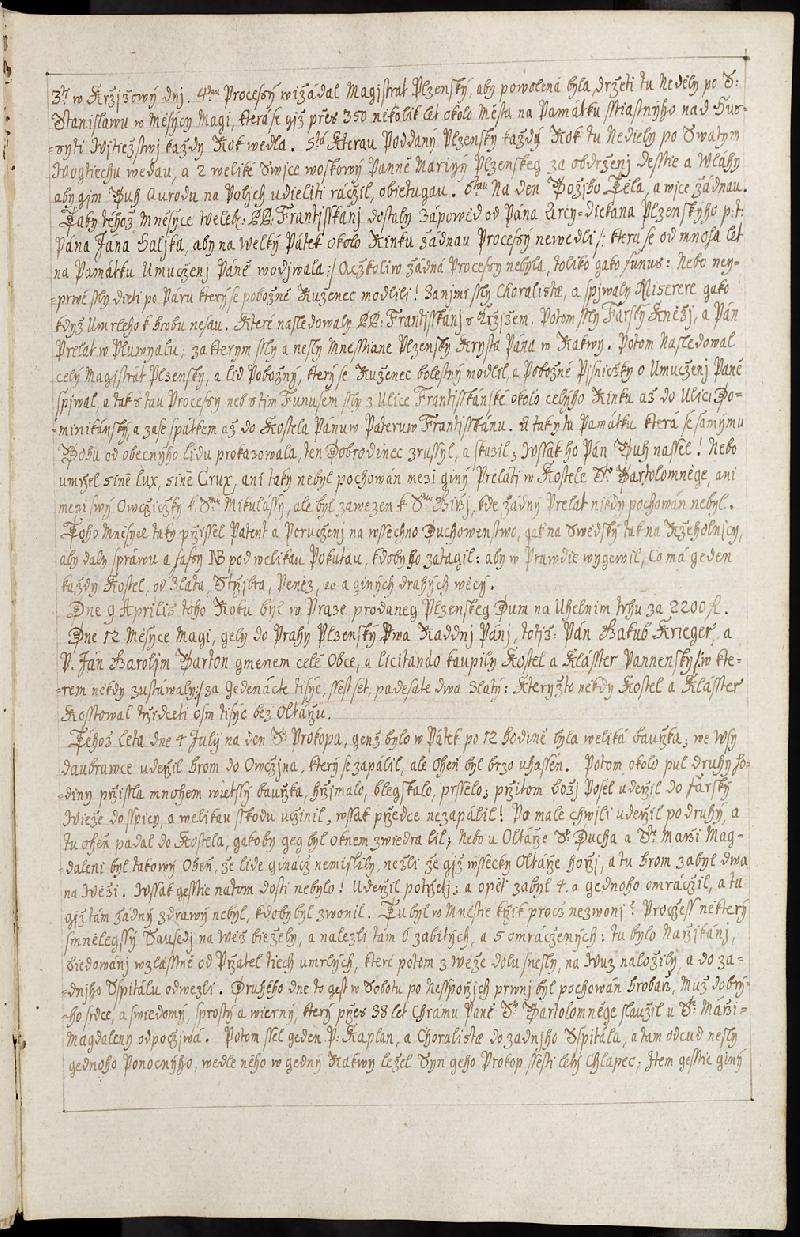 3tí w Křížowý dnj. 4tau Processý wižádal Magistrát Plzenský, aby powolená byla, držeti tu Neděly po S:
Stanislawu w Měsýcy Magi, která se giž přes 350 několik let okolo Města na Památku sstiastnýho nad Hus-
=syti Wjtiezstwj každý Rok wedla. 5tá kterau Poddaný Plzenský každý Rok tu Nedielý po Swatým
Woytiechu wedau, a 2 weliké Swjce woskowý Panně Mariny Plzenskeg za obdrženj desstie a Wláhy
aby gjm Buh aurodu na Polých udieliti ráčzil, obietugau. 6tau Na den Božiho Těla, a wjce žádnau.
Taky téhož Mněsýce weleb: PP. Frantisskánj dostaly Zápowěd od Pána Arcy-diekana Plzenskýho p:t:
Pána Jana, aby na welký Pátek okolo Rinku žádnau Processy newedli /: která se od mnoha let
na Památku Umučzenj Páně wodjwala :/ Ačzkoliw žádná Processy nebyla, toliko gako funus: Nebo ney-
=prwé ssly dieti po Páru který se pobožně Ruženec modlili! Zanjmi ssly Choralistæ, a spjwaly Miserere gako
když Umrlcho k hrobu nesau. Které nasledowaly PP: Frantisskánj s křzjžem. Potom ssly Farsky Kněžj, a Pán
Prelat w Pluwyalu; za kterym ssly a nesly Mnesstiané Plzenský Krysta Pána w Rakwy. Potom Následowal
celý Magistrát Plzenský, a lid Pobožný, který se Ruženec bolestný modlil, a Pobožné Pjsničzky o Umučzenj Páně
spjwal, a tak s tau Processy neb s tim Funusem ssly z Ulice Frantisskánské okolo celyho Rinku až do Ulicj Do-
minikánský, a zase spátkem až do kostela Pánuw Páteruw Frantisskánu. A taky tu Památku která se samýmu
Bohu od obecnyho lidu prokazowala, ten Dobrodinec zrussyl, a skazil; wssak ho Pán Buh nassel! Nebo
umrzel sine lux, sine Crux, ani taky nebyl pochowán mezi giný Preláti w Kostele Sv Bartolomněge, ani
mezi swý Owečzičzky k Sv Mikulássy, ale byl zawezen k Sv Girzj, kde žádný Prelat nikdy pochowán nebyl.
Toho Mněsýce taky přzissel Patent a Poručzenj na wssechno Duchowenstwo, gak na Swědský tak na Rzeholnjcy,
aby daly spráwu a fassy NB pod welikau Pokutau, kdoby ho zatagil: aby w Prawdie wygewil, co má geden
každý Kostel, od Zlata, Střjbra, Peněz, ao a ginych drahých wěcý.
Dne 9 Aprilis tého Roku byl w Praze prodaneg Plzenskeg Dum na Uhelnim trhu za 2200 fl.
Dne 12 Měsýce Magi, gely do Prahy Plzenský dwa Raddnj Pánj, totiž: Pán Jakub Krieger, a
P. Ján Karoljm Barton gmenem celé Obce, a licitando kaupily Kostel a Klásster Pannenský /: w kte-
=rem někdy zustáwaly :/ za gedenáckt tisýc, ssest set, padesáte dwa Zlatý: Kterýžto někdy Kostel a Klásster
kosstowal trzidceti osm tisýc bez Oltářu.
Téhož Léta dne 4 Julý na den Sv Prokopa, genž bylo w Pátek po 12 hodině byla weliká bauřka; we Wsy
daubrawce udeřil hrom do Owčzjna, který se zapálil, ale oheň byl brzo uhassen. Potom okolo pul druhý ho-
diny přzissla mnohem wietssý bauřka, hřzjmalo, blegskalo, prsselo; přzitom božj Posel udeřil do farský
Wieže do sspicy, a welikau sskodu učžinil, wssak přzedce nezapálil! Po malé chwjli udeřil podruhý, a
tu oheň padal do Kostela, gakoby geg byl oknem z wiedra lil; Nebo u Oltáře Sv Ducha a Sv Mařj Mag-
daleni byl takowý Oheň, že lide ginácž nemislily, nežli že giž wssecky Oltáře hořj, a tu hrom zabyl dwa
na Wěži. Wssak gesstie na tom dosti nebylo! Udeřil potřzetj; a opět zabyl 4. a gednoho omráčzil, a tu
giž tam žadný zdrawý nebyl, kdoby byl zwonil. Tu byl w Mněstie křzik procž nezwonj? Procžess některý
smělegssý Sausedj na Wěž bieželý, a nalezli tam 6 zabitých, a 5 omráčzených: tu bylo Nařzjkánj,
biedowánj wzlasstně od Přzátel tiech umrlých, které potom z wěže dolu snesly, na Wuz naložily, a do za-
=dnjho Sspitálu odwezli. Druhého dne to gest w Sobotu po Nessporžjch prwnj byl pochowán hrobarž, Muž dobrý-
=ho srdce, a swědomý, sprostý a wierný, který přzes 38 let Chrámu Páně Sv Bartolomněge slaužil u Sv Mářzi-
Magdaleny odpočzjwá. Potom ssel geden P: Kaplan, a Choralistæ do zadnjho Sspitála, a tam odtud nesly
gednoho Ponocnýho, wedle něho w gedný Rakwy ležel Syn geho Prokop ssesti letý Chlapec; Item gesstie giný